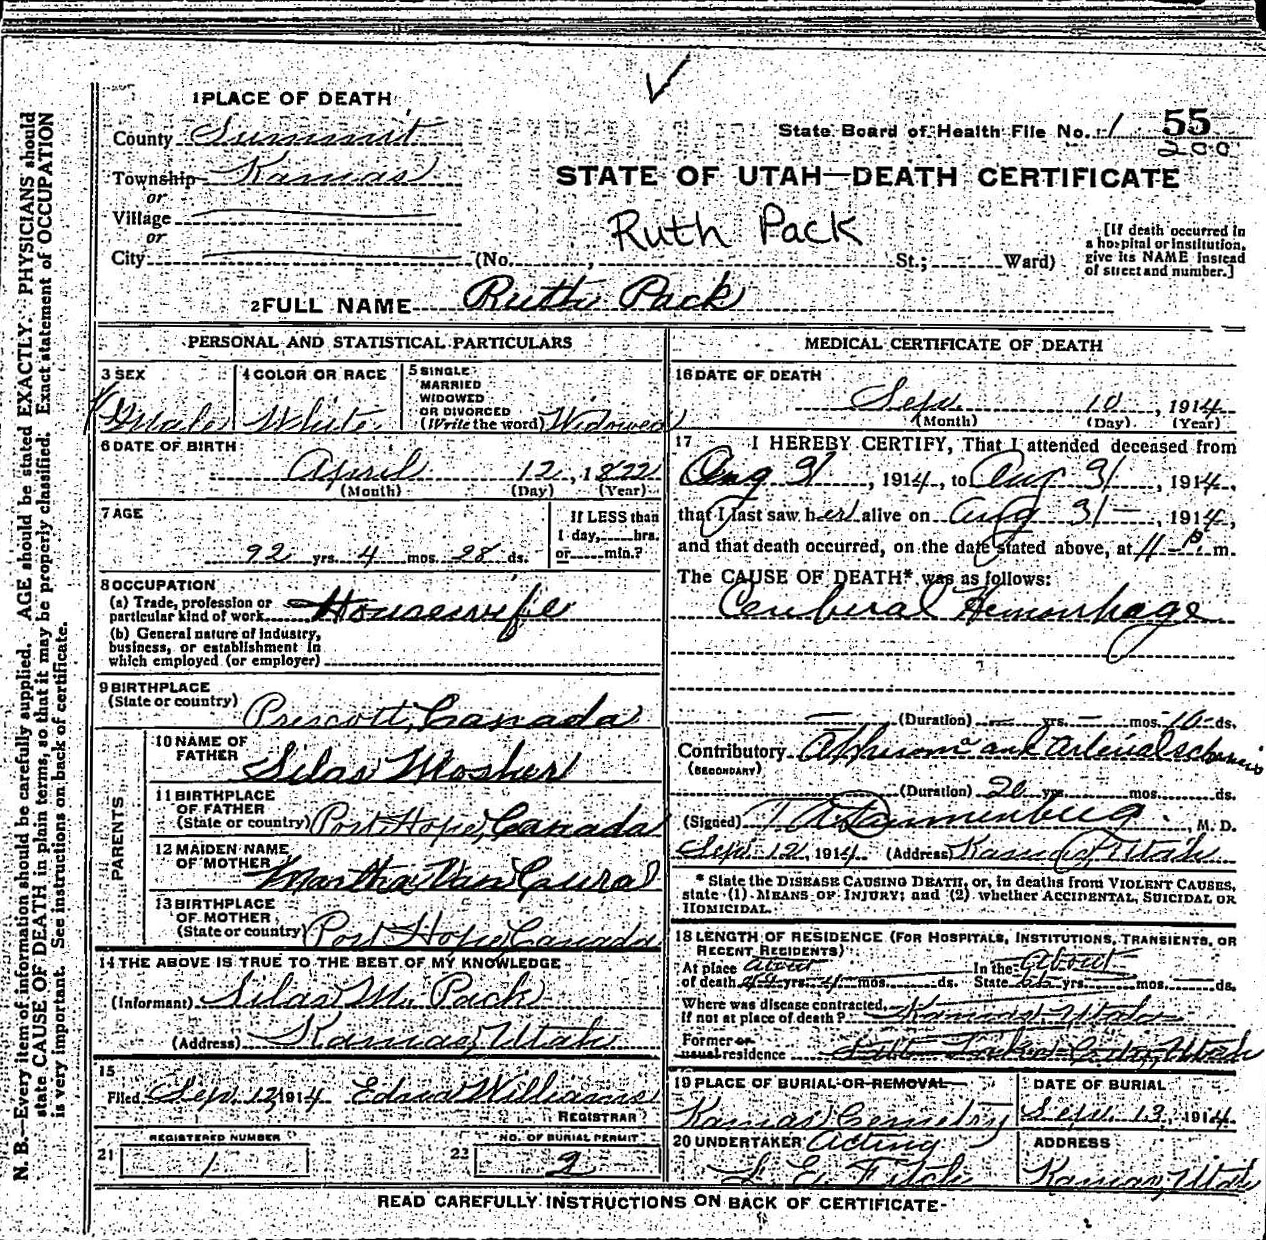 1 PLACE OF DEATH
County Summit
State Board of Health File No. 1 55
200
Township Kamas
or
STATE OF UTAH—DEATH CERTIFICATE
Village
or
Ruth Pack
[If death occurred in
a hospital or institution,
give its NAME instead
of street and number.]
City (No. , St.; Ward)
2 FULL NAME Ruth Pack
PERSONAL AND STATISTICAL PARTICULARS
3 SEX
Female
4 COLOR OR RACE
White
5 SINGLE
MARRIED
WIDOWED
OR DIVORCED
(Write the word) Widowed
6 DATE OF BIRTH
April 12, 1822
(Month) (Day) (Year)
7 AGE
92 yrs. 4 mos. 28 ds.
If LESS than
1 day, hrs.
or min.?
8 OCCUPATION
(a) Trade, profession or
particular kind of work Housewife
(b) General nature of industry,
business, or establishment in
which employed (or employer)
9 BIRTHPLACE
(State or country) Prescott, Canada
PARENTS
10 NAME OF
FATHER Silas Mosher
11 BIRTHPLACE
OF FATHER
(State or country) Port Hope, Canada
12 MAIDEN NAME
OF MOTHER Martha Van
13 BIRTHPLACE
OF MOTHER
(State or country) Port Hope Canada
14 THE ABOVE IS TRUE TO THE BEST OF MY KNOWLEDGE
(Informant) Silas M. Pack
(Address) Kamas, Utah
15
Filed Sep. 12, 1914 Williams
REGISTRAR
REGISTERED NUMBER
21 1
NO. OF BURIAL PERMIT
22 2
MEDICAL CERTIFICATE OF DEATH
16 DATE OF DEATH
Sep. 10, 1914
(Month) (Day) (Year)
17 I HEREBY CERTIFY, That I attended deceased from
Aug 31, 1914, to Aug 31, 1914,
that I last saw her alive on Aug 31—, 1914,
and that death occurred, on the date stated above, at 11 – P. m.
The CAUSE OF DEATH* was as follows:
Cerebral Hemorrhage
(Duration) yrs. mos. 10 ds.
Contributory and
(SECONDARY)
(Duration) 20 yrs. mos. ds.
(Signed) , M. D.
Sept 12, 1914 (Address) Kamas, Utah
* State the DISEASE CAUSING DEATH, or, in deaths from VIOLENT CAUSES,
state (1) MEANS OF INJURY; and (2) whether ACCIDENTAL, SUICIDAL OR
HOMICIDAL.
18 LENGTH OF RESIDENCE (FOR HOSPITALS, INSTITUTIONS, TRANSIENTS, OR
RECENT RESIDENTS)
At place About In the About
of death 44 yrs. 4 mos. ds. State yrs. mos. ds.
Where was disease contracted,
If not at place of death? Kamas, Utah
Former or
usual residence Utah
19 PLACE OF BURIAL OR REMOVAL
Kamas Cemetery
DATE OF BURIAL
Sept. 13, 1914
20 UNDERTAKER Acting
L. E. Fitch
ADDRESS
Kamas, Utah
READ CAREFULLY INSTRUCTIONS ON BACK OF CERTIFICATE
N. B.—Every item of information should be carefully supplied. AGE should be stated EXACTLY. PHYSICIANS should
state CAUSE OF DEATH in plain terms, so that it may be properly classified. Exact statement of OCCUPATION
is very important. See instructions on back of certificate.